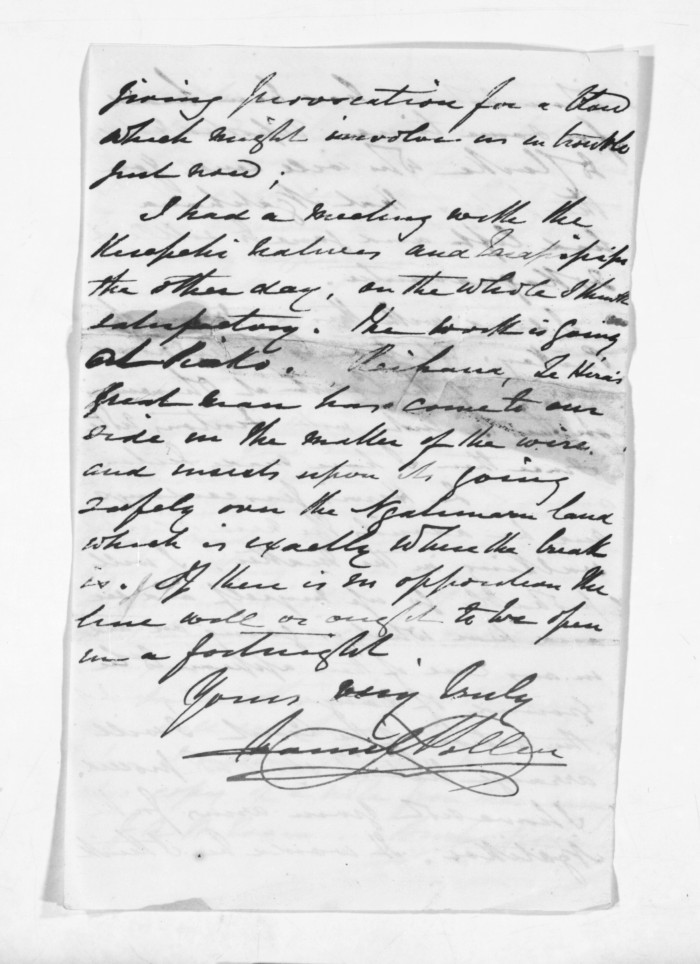 giving provocation for a blow
which might involve us in trouble
just now;
I had a meeting with the
natives and
the other day, on the whole I think
satisfactory. The work is going
at Piako. Reihana, Te Hira's
great man has come to our
side in the matter of the wire.
and insists upon its going
safely over the Ngatimaru land
which is exactly where the break
is. If there is no opposition the
line will or ought to be open
in a fortnight
Yours very truly
Daniel Pollen